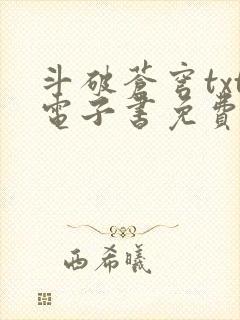 斗破蒼穹txt
電子書免費
西希曦